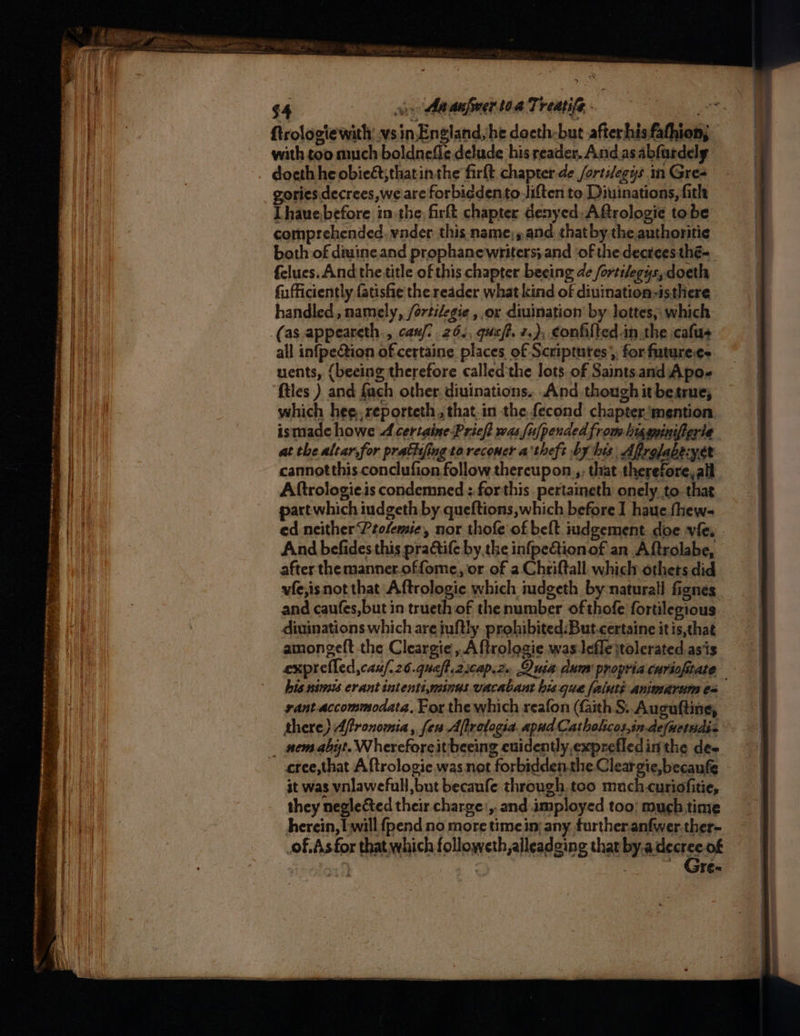 54 An answer to a Treatise
ſtrologie with vs in England, he doeth but after his faſhion,
with too much boldneſſe delude his reader. And as abſurdely
doeth he obiect, that in the firſt chapter de ſortilegijs in Gre-
gories decrees, we are forbidden to liſten to Diuinations, ſith
I haue before in the firſt chapter denyed Aſtrologie to be
comprehended vnder this name, and that by the authoritie
both of diuine and prophane writers, and of the decrees thē-
ſelues. And the title of this chapter beeing de ſortilegijs, doeth
ſufficiently ſatisfie the reader what kind of diuination is there
handled, namely, ſortilegie, or diuination by lottes, which
(as appeareth, cauſ. 26. quæſt. 1.) conſiſted in the caſu-
all inſpection of certaine places of Scriptures, for future e-
uents, (beeing therefore called the lots of Saints and Apo-
ſtles) and ſuch other diuinations. And though it be true,
which hee reporteth, that in the ſecond chapter mention
is made howe A certaine Prieſt was ſuſpended from his miniſterie
at the altar, for practiſing to recouer a theft by his Aſtrolabe: yet
cannot this concluſion follow thereupon, that therefore, all
Aſtrologie is condemned: for this pertaineth onely to that
part which iudgeth by queſtions, which before I haue ſhew-
ed neither Ptolemie, nor thoſe of beſt iudgement doe vſe.
And beſides this practiſe by the inſpection of an Aſtrolabe,
after the manner of ſome, or of a Chriſtall which others did
vſe, is not that Aſtrologie which iudgeth by naturall ſignes
and cauſes, but in trueth of the number of thoſe ſortilegious
diuinations which are iuſtly prohibited. But certaine it is, that
amongeſt the Cleargie, Aſtrologie was leſſe tolerated as is
expreſſed, cauſ. 26. quæſt. 2. cap. 2. Quia dum propria curioſitate
his nimis erant intenti, minus vacabant his quæ ſaluti animarum e-
rant accommodata. For the which reaſon (ſaith S. Auguſtine,
there) Aſtronomia, ſeu Aſtrologia apud Catholicos, in deſuetudi-
nem abijt. Wherefore it beeing euidently expreſſed in the de-
cree, that Aſtrologie was not forbidden the Cleargie, becauſe
it was vnlawefull, but becauſe through too much curioſitie,
they neglected their charge, and imployed too much time
herein, I will ſpend no more time in any further anſwer ther-
of. As for that which followeth, alleadging that by a decree of
Gre-